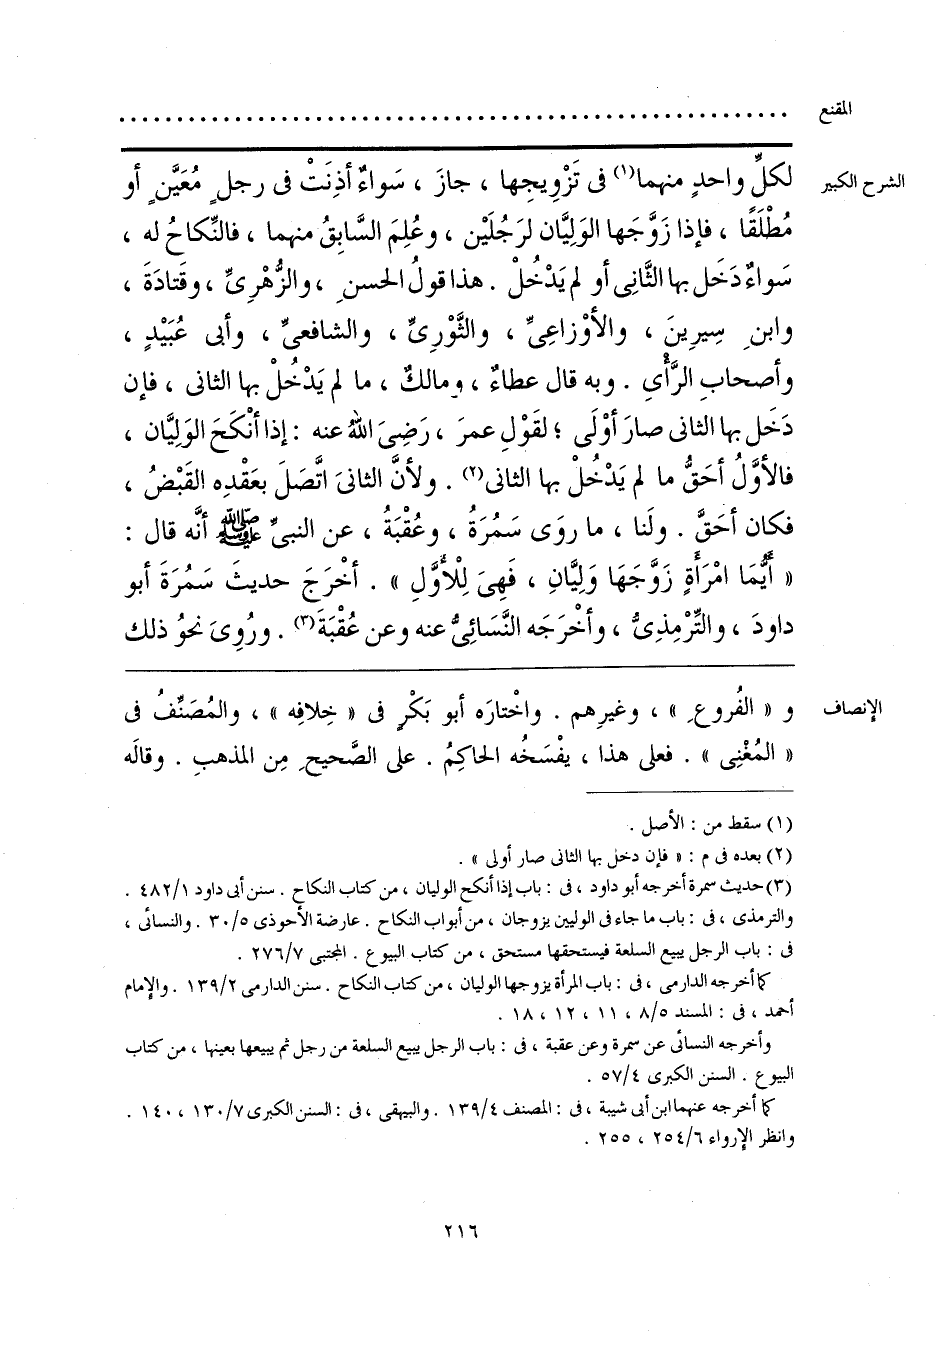 المقنع ................................................
الشرح الكبير لكلِّ واحدٍ منهما(١) فى تَزْوِيجِها ، جازَ ، سَواءٌ أذِنَتْ فى رجلٍ مُعَيَّنٍ أو
مُطْلَقًا ، فإذا زَوَّجَها الوَلِيَّان لرَجُلَيْن ، وعُلِمَ السَّابِقُ منهما ، فالنِّكاحُ له ،
سَواءٌ دَخَل بها الثَّانِى أو لم يَدْخُلْ . هذا قولُ الحسنِ ، والزُّهْرِىِّ ، وقَتادَةَ ،
وابنِ سِيرِينَ ، والأوْزاعِىِّ ، والثَّوْرِىِّ ، والشافعىِّ ، وأبى عُبَيْدٍ ،
وأصحابِ الرَّأْىِ . وبه قال عطاءٌ ، ومالكٌ ، ما لم يَدْخُلْ بها الثانى ، فإن
دَخَل بها الثانى صار أوْلَى ؛ لقَوْلِ عمرَ ، رَضِىَ اللهُ عنه : إذا أنْكَحَ الوَلِيَّان ،
فالأوَّلُ أحَقُّ ما لم يَدْخُلْ بها الثانى(٢) . ولأنَّ الثانىَ اتَّصَلَ بعَقْدِه القَبْضُ ،
فكان أحَقَّ . ولَنا ، ما روَى سَمُرَةُ ، وعُقْبَةُ ، عن النبىِّ ﷺ أنَّه قال :
« أَيُّمَا امْرَأَةٍ زَوَّجَهَا وَلِيَّانِ ، فَهِىَ لِلْأَوَّلِ » . أخْرَجَ حديثَ سَمُرَةَ أبو
داودَ ، والتِّرْمِذِىُّ ، وأخْرَجَه النَّسائِىُّ عنه وعن عُقْبَةَ(٣) . ورُوِىَ نحوُ ذلك
الإنصاف و « الفُروعِ » ، وغيرِهم . واخْتارَه أبو بَكْرٍ فى « خِلافِه » ، والمُصَنِّفُ فى
« المُغْنِى » . فعلى هذا ، يفْسَخُه الحاكِمُ . على الصَّحيحِ مِن المذهبِ . وقالَه
(١) سقط من : الأصل .
(٢) بعده فى م : « فإن دخل بها الثانى صار أولى » .
(٣) حديث سمرة أخرجه أبو داود ، فى : باب إذا أنكح الوليان ، من كتاب النكاح . سنن أبى داود ٤٨٢/١ .
والترمذى ، فى : باب ما جاء فى الوليين يزوجان ، من أبواب النكاح . عارضة الأحوذى ٣٠/٥ . والنسائى ،
فى : باب الرجل يبيع السلعة فيستحقها مستحق ، من كتاب البيوع . المجتبى ٢٧٦/٧ .
كما أخرجه الدارمى ، فى : باب المرأة يزوجها الوليان ، من كتاب النكاح . سنن الدارمى ١٣٩/٢ . والإمام
أحمد ، فى : المسند ٨/٥ ، ١١ ، ١٢ ، ١٨ .
وأخرجه النسائى عن سمرة وعن عقبة ، فى : باب الرجل يبيع السلعة من رجل ثم يبيعها بعينها ، من كتاب
البيوع . السنن الكبرى ٥٧/٤ .
كما أخرجه عنهما ابن أبى شيبة ، فى : المصنف ١٣٩/٤ . والبيهقى ، فى : السنن الكبرى ١٣٠/٧ ، ١٤٠ .
وانظر الإرواء ٢٥٤/٦ ، ٢٥٥ .
٢١٦